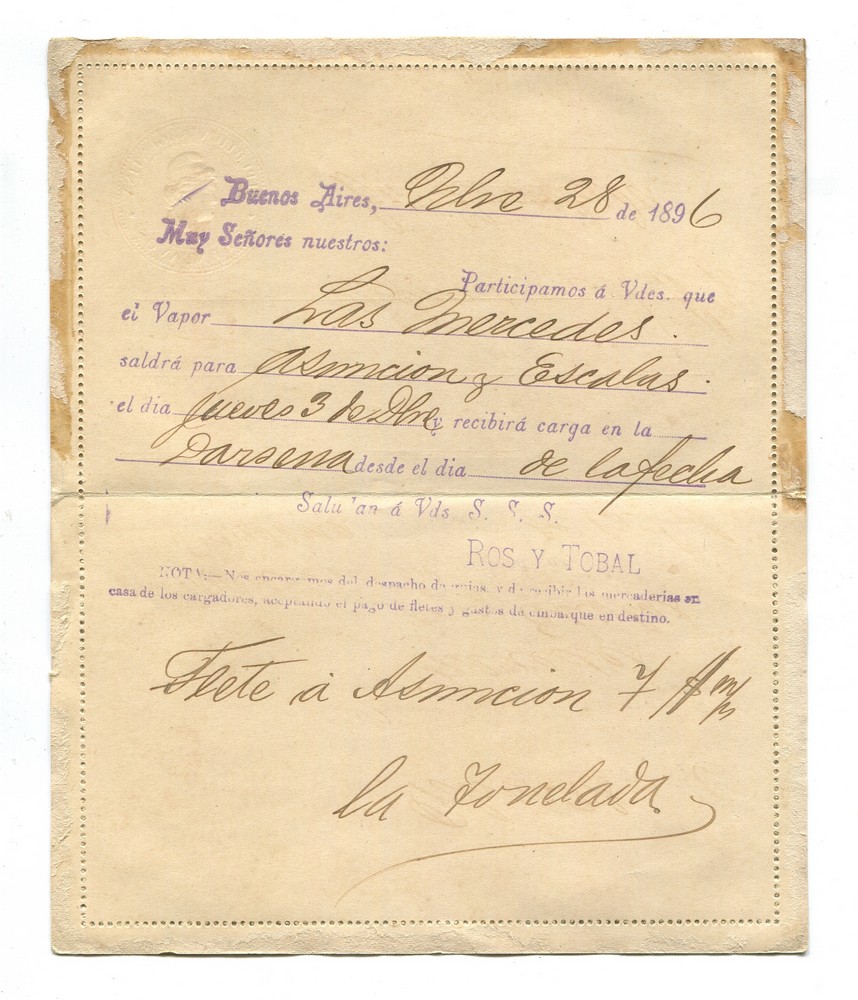 Buenos Aires, Nbre 28 de 1896
Muy Señores nuestros:
Participamos á Vdes. que
el Vapor Las Mercedes.
saldrá para Asuncion y Escalas.
el dia Jueves 3 de Dbre y recibirá carga en la
Darsena desde el dia de la fecha
Salu'an á Vds S. S. S.
ROS Y TOBAL
NOTA:—Nos encargamos del despacho de guias, y de recibir las mercaderias en
casa de los cargadores, aceptando el pago de fletes y gastos de embarque en destino.
Flete á Asuncion 7 $ m/n
la Tonelada